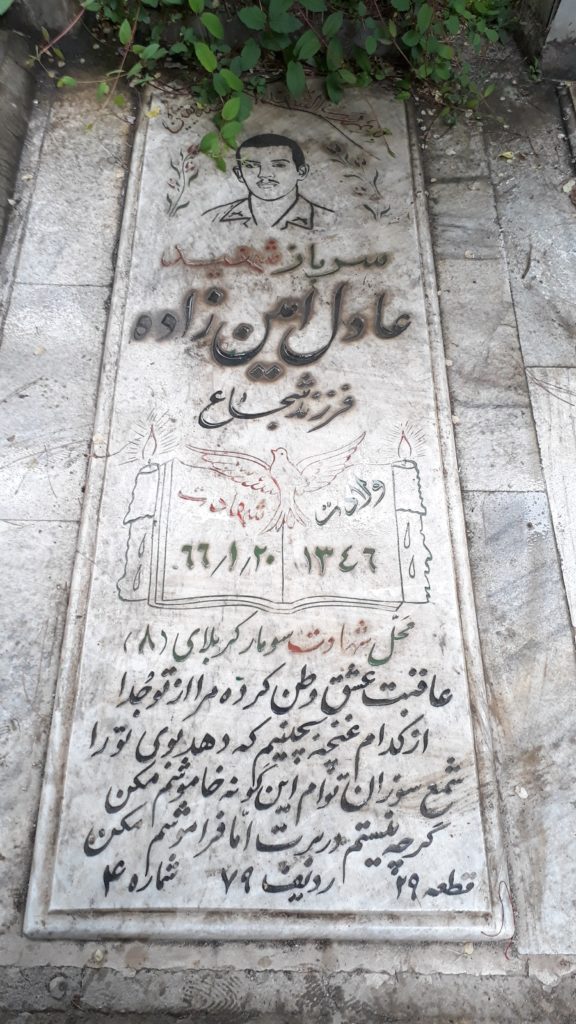 سرباز شهید
عادل امین زاده
فرزند شجاع
ولادت شهادت
۱۳۴۶ ۶۶/۱/۲۰
محل شهادت سومار کربلای (۸)
عاقبت عشق وطن کرده مرا از تو جُدا
از کدام غنچه بچینیم که دهد بوی تو را
شمع سوزان توام این گونه خاموشم مکن
گرچه نیستم در برت امّا فراموشم مکن
قطعه ۲۹ ردیف ۷۹ شماره ۴